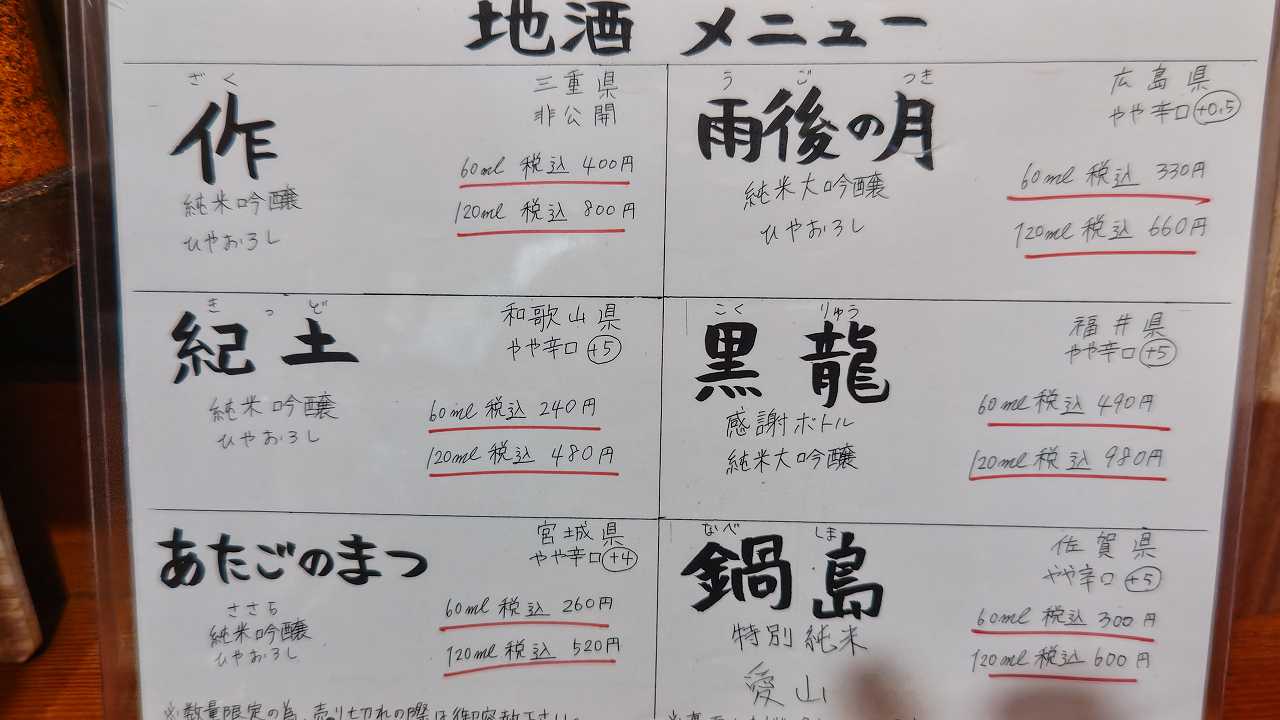 地酒 メニュー
ざく
作
三重県
非公開
60ml 税込 400円
120ml 税込 800円
純米吟醸
ひやおろし
うご つき
雨後の月
広島県
やや辛口 +0.5
60ml 税込 330円
120ml 税込 660円
純米大吟醸
ひやおろし
きっど
紀土
和歌山県
やや辛口 +5
60ml 税込 240円
120ml 税込 480円
純米吟醸
ひやおろし
こくりゅう
黒龍
福井県
やや辛口 +5
60ml 税込 490円
120ml 税込 980円
感謝ボトル
純米大吟醸
あたごのまつ
宮城県
やや辛口 +4
60ml 税込 260円
120ml 税込 520円
ささら
純米吟醸
ひやおろし
なべしま
鍋島
佐賀県
やや辛口 +5
60ml 税込 300円
120ml 税込 600円
特別純米
愛山
※数量限定の為、売り切れの際は御容赦下さい。